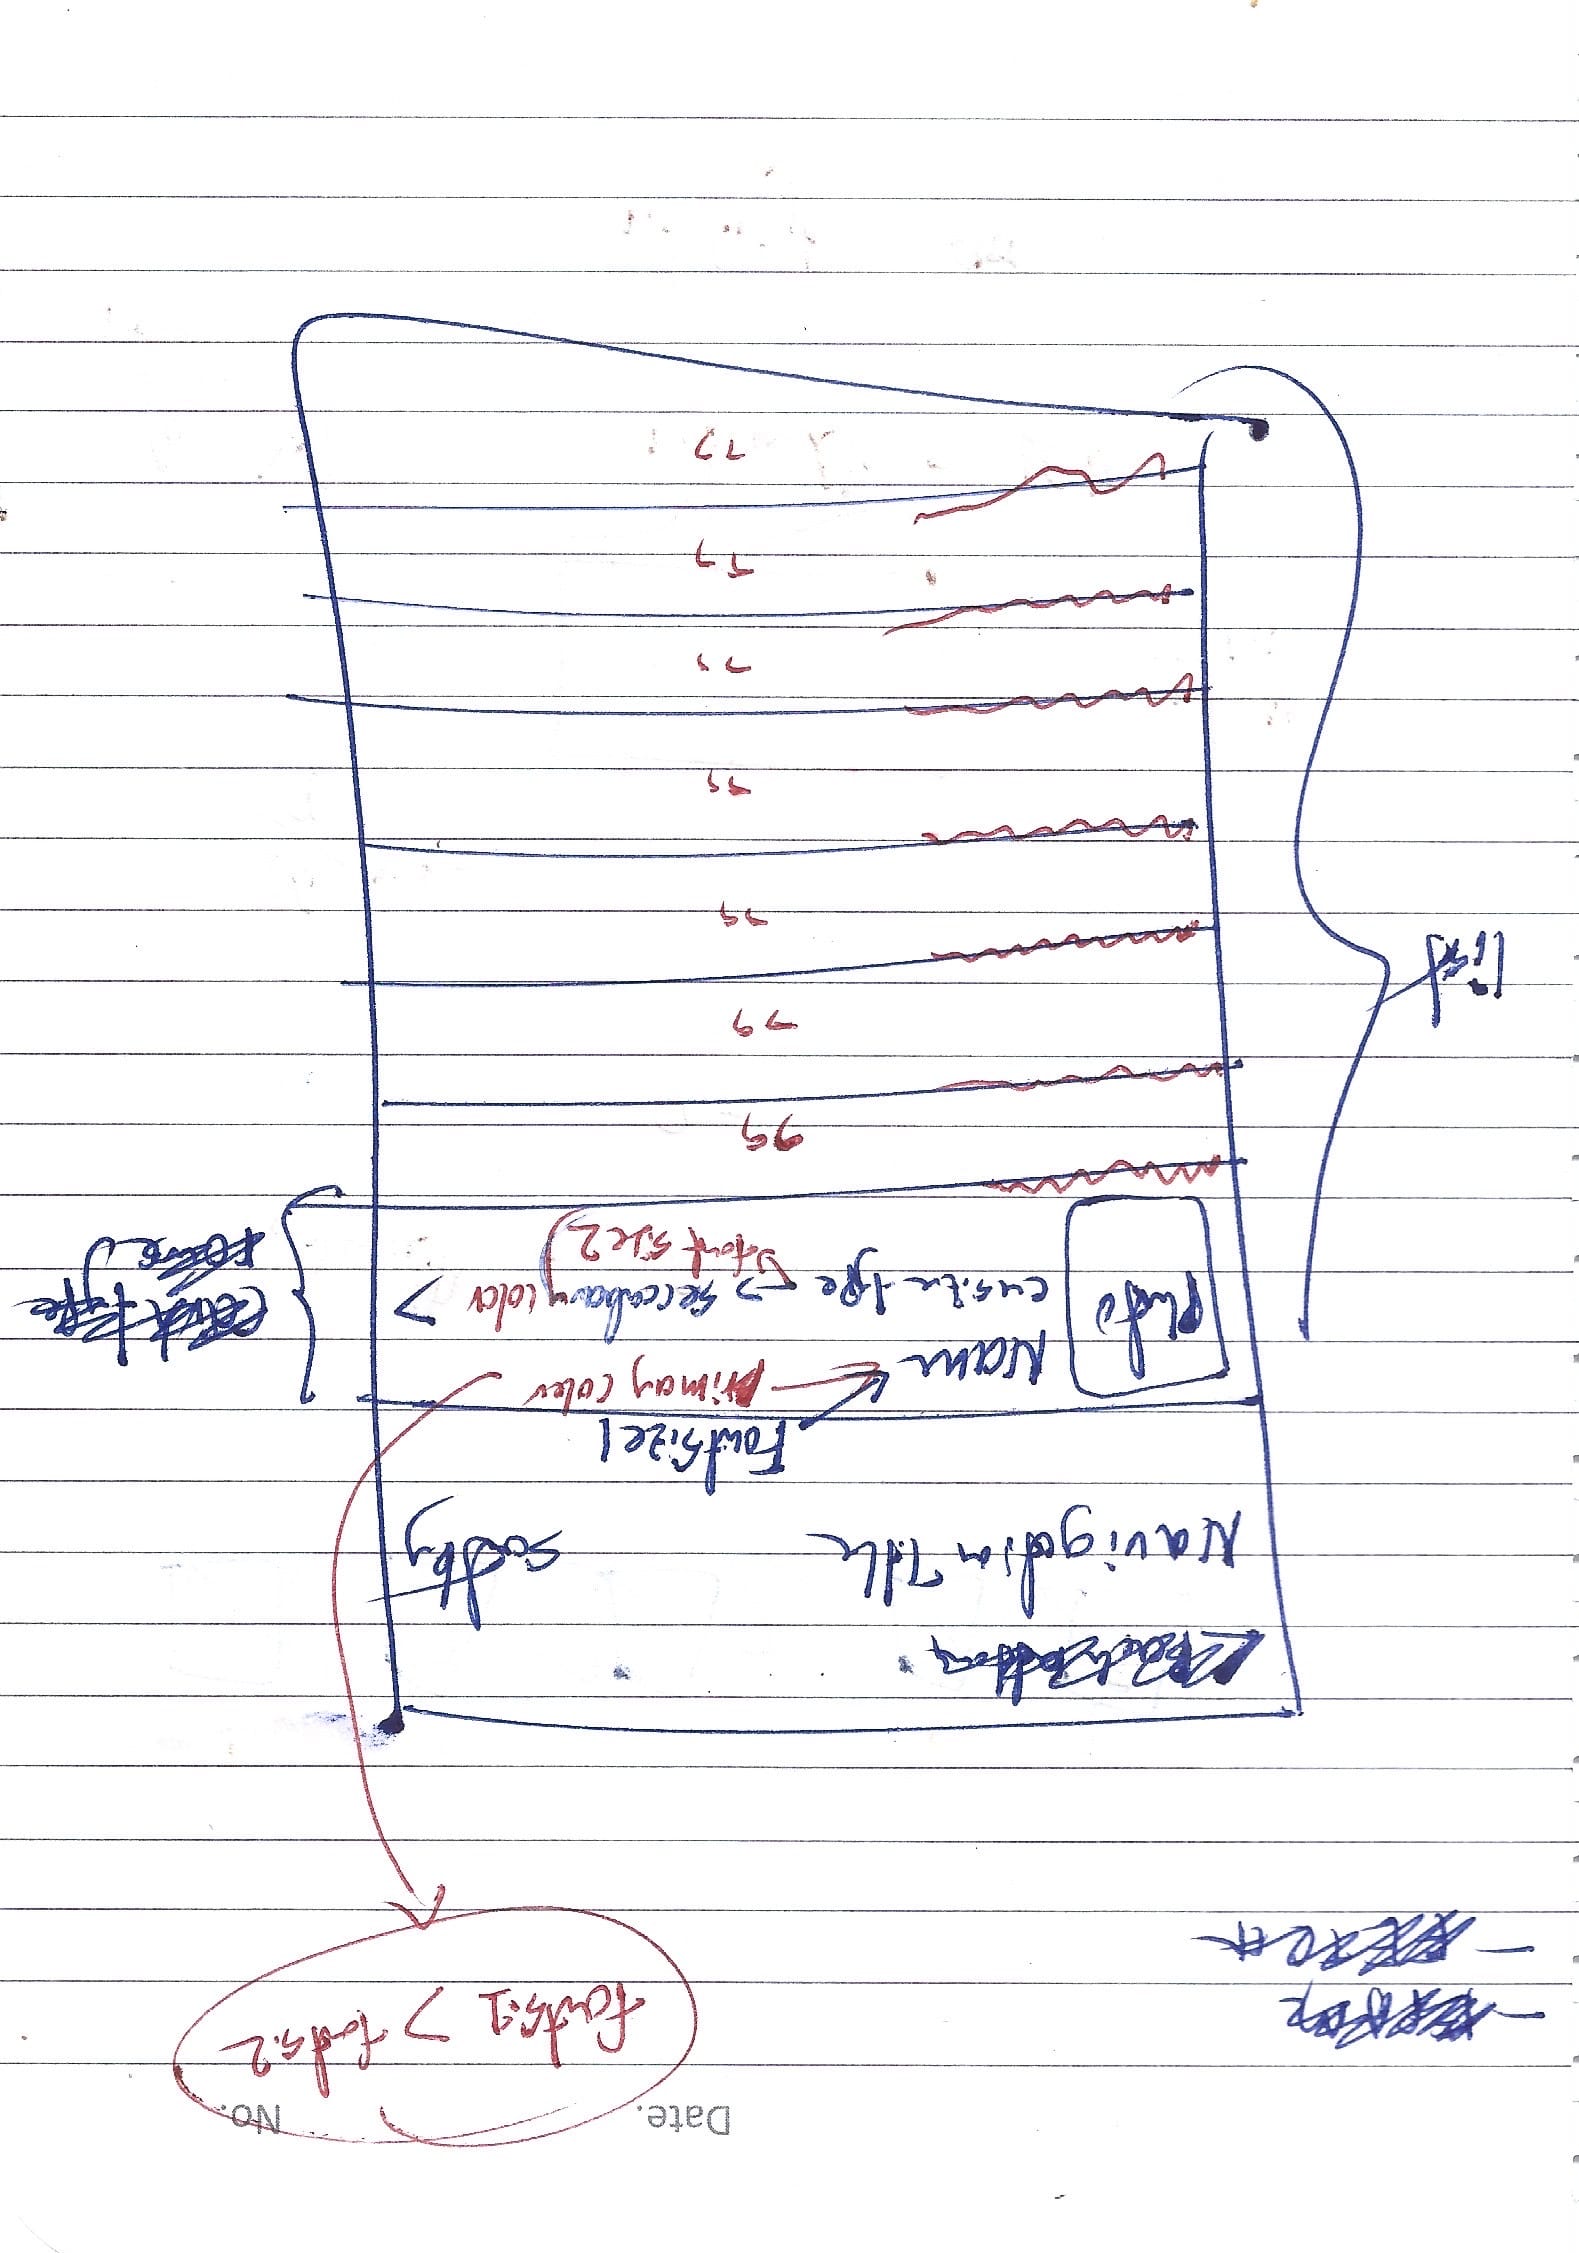 Date. No.
fonts.1 > fonts.2
Navigation Title sortby
Fontsize1
Name Primary color
photo
cusine type → secondary color >
font size 2
"
"
list
"
"
"
"
"